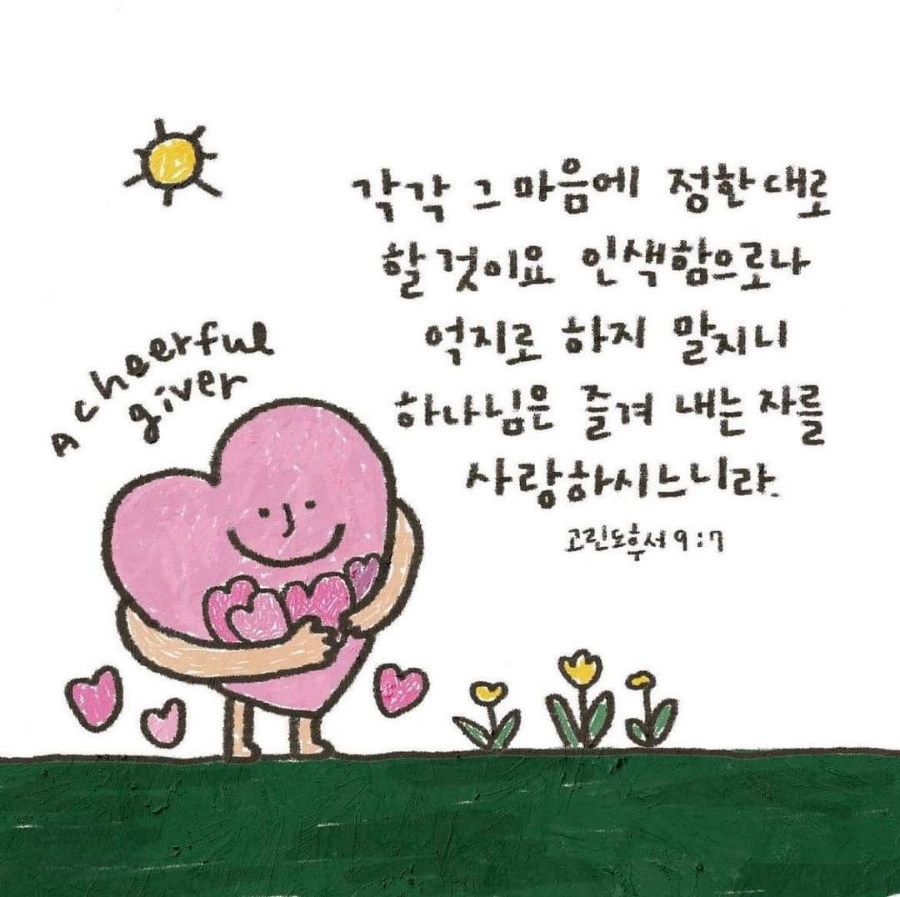 각각 그 마음에 정한대로
할 것이요 인색함으로나
억지로 하지 말지니
하나님은 즐겨 내는 자를
사랑하시느니라.
고린도후서 9:7
A cheerful
giver